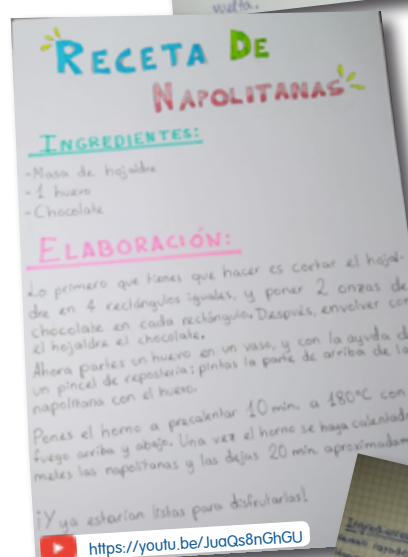 vuelta.
RECETA DE
NAPOLITANAS
INGREDIENTES:
-Masa de hojaldre
-1 huevo
-Chocolate
ELABORACIÓN:
Lo primero que tienes que hacer es cortar el hojal-
dre en 4 rectángulos iguales, y poner 2 onzas de
chocolate en cada rectángulo. Después, envolver con
el hojaldre el chocolate.
Ahora partes un huevo en un vaso, y con la ayuda de
un pincel de repostería; pintas la parte de arriba de la
napolitana con el huevo.
Pones el horno a precalentar 10 min. a 180°C con
fuego arriba y abajo. Una vez el horno se haya calentado
metes las napolitanas y las dejas 20 min. aproximadam
¡Y ya estarían listas para disfrutarlas!
Ingredientes
https://youtu.be/JuaQs8nGhGU